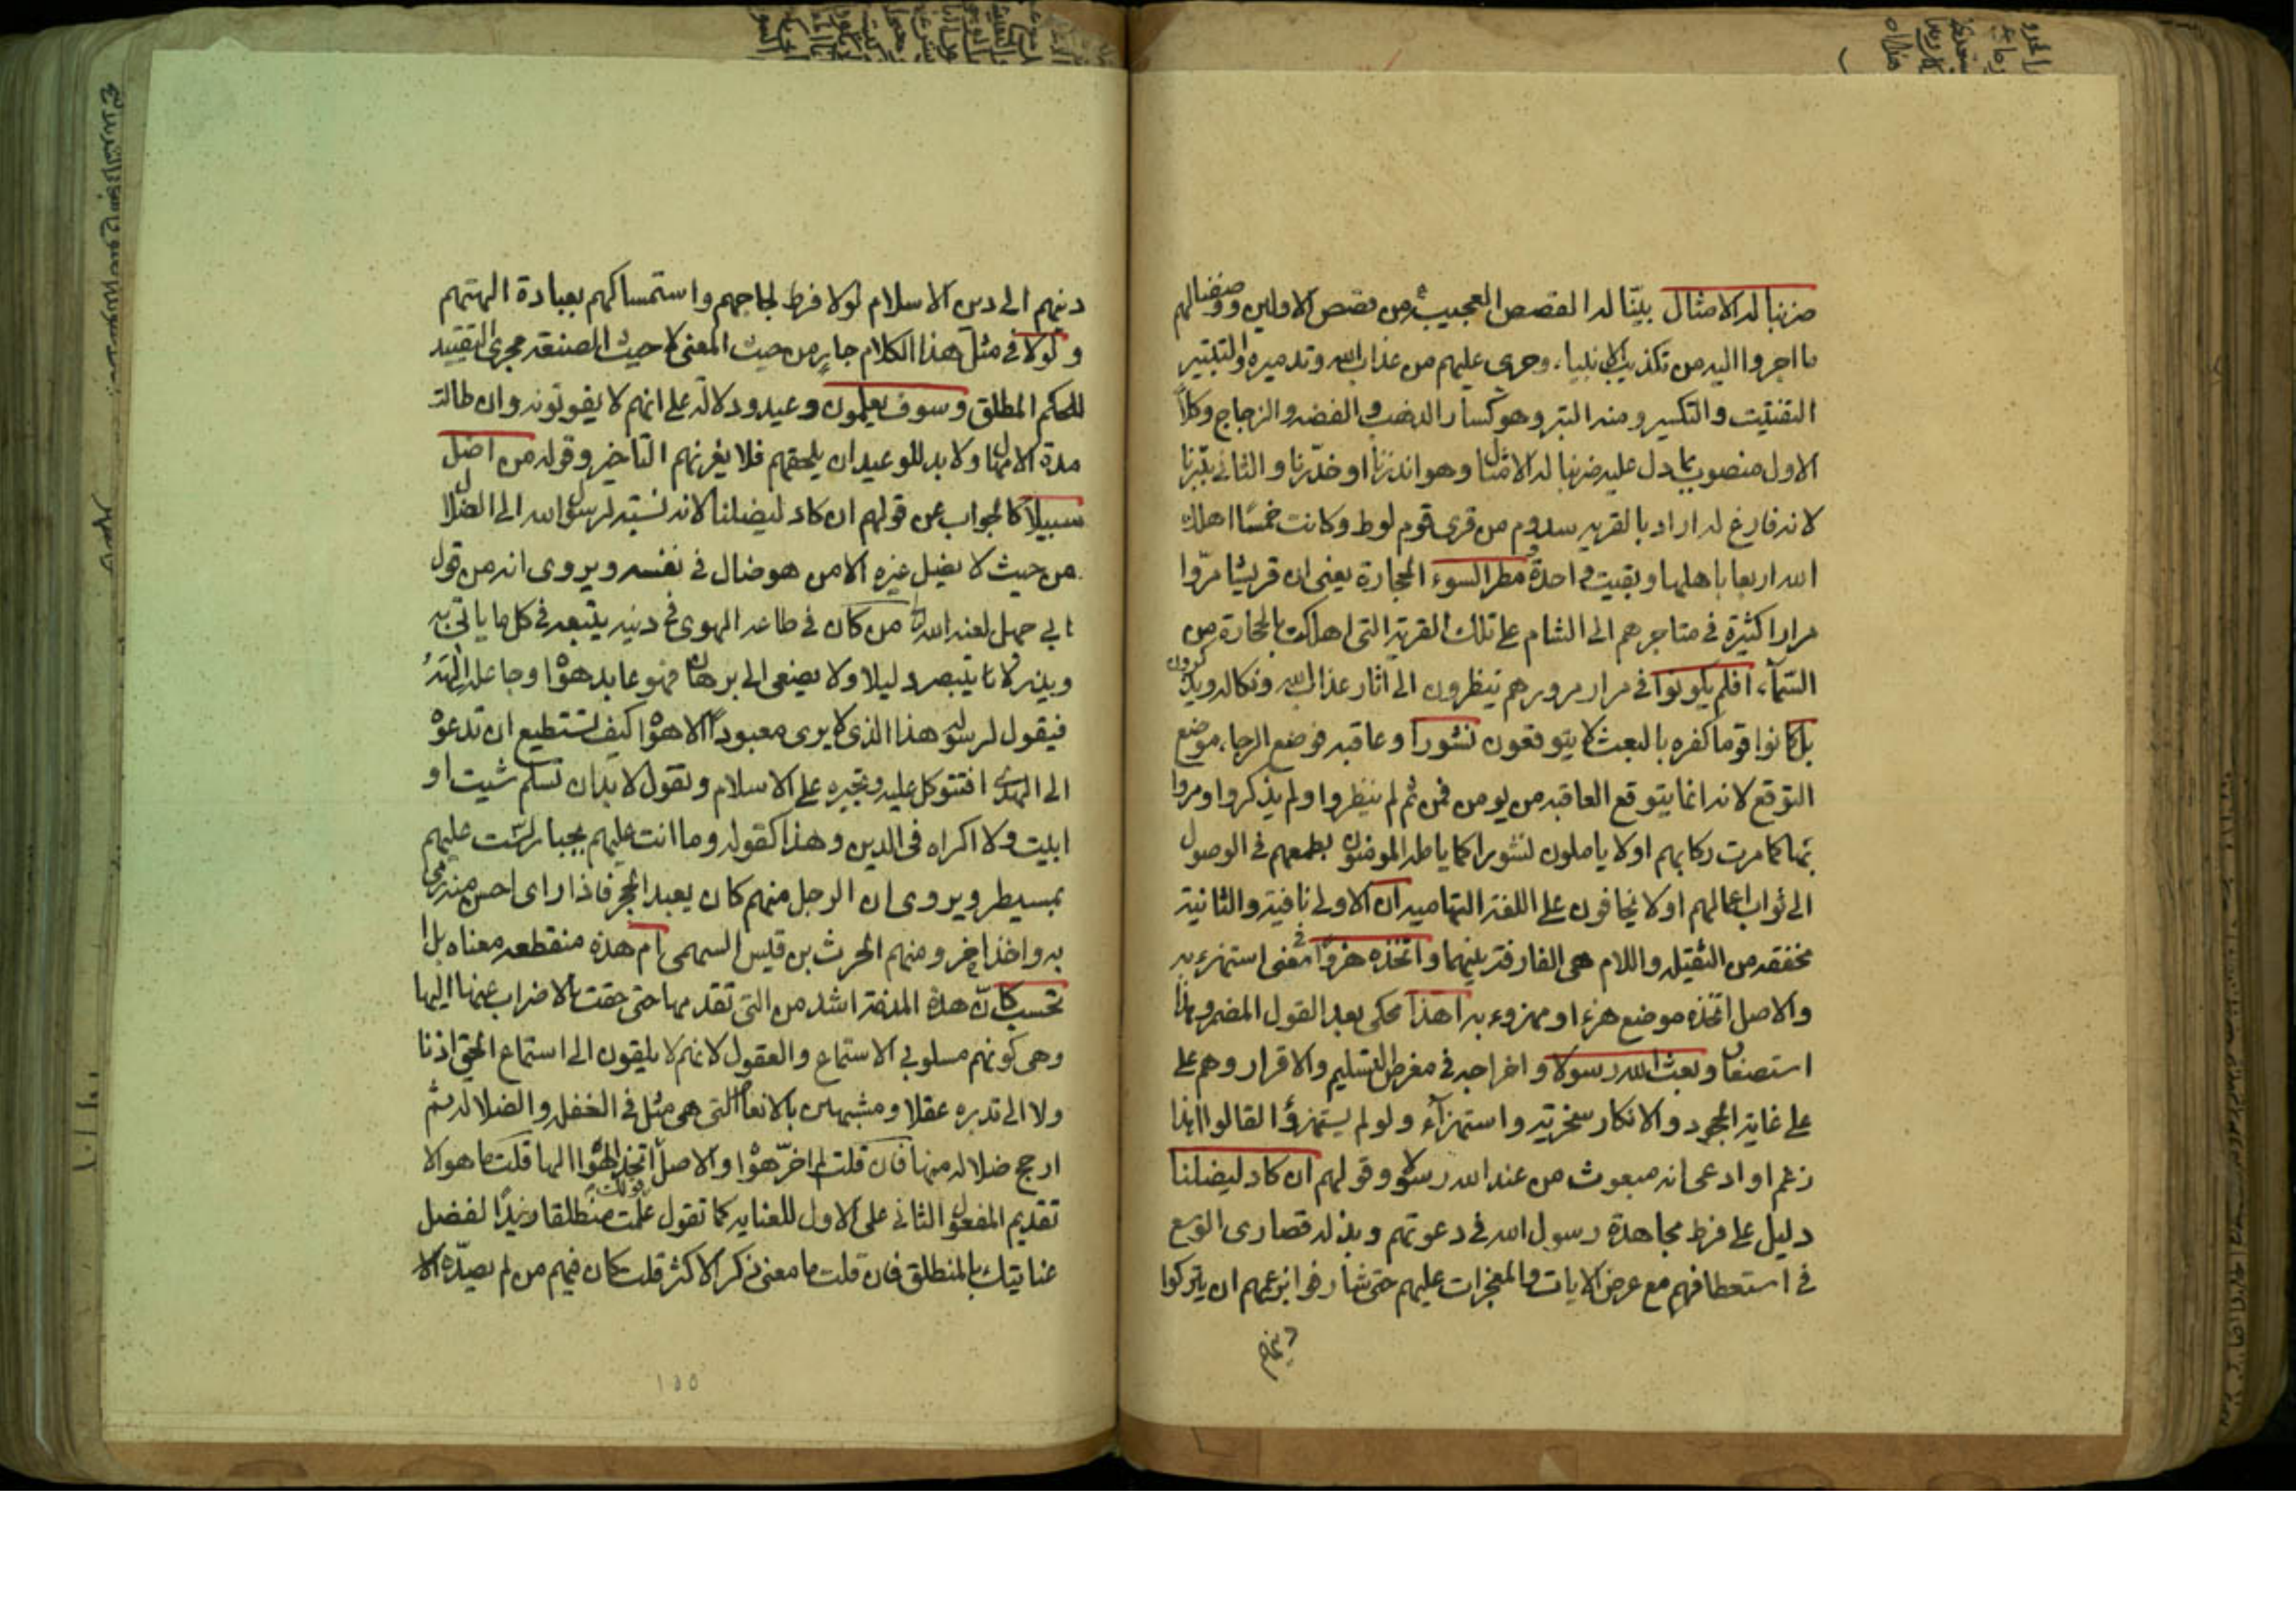 ضربنا له الامثال بيّنا له القصص العجيبة من قصص الاولين ووصفنا لهم
ما اجروا اليه من تكذيب الانبياء، وجرى عليهم من عذاب الله وتدميره والتتبير
التفتيت والتكسير ومنه التبر وهو كسار الذهب والفضه والزجاج وكلاً
الاول منصوب بما دل عليه ضربنا له الامثال وهو انذرنا او حذّرنا والثاني بتبرنا
لانه فارغ له اراد بالقريه سدوم من قرى قوم لوط وكانت خمسًا اهلك
الله اربعا باهلها وبقيت واحدة ومطر السوء الحجارة يعنى ان قريشا مرّوا
مرارا كثيرة فى متاجرهم الى الشام على تلك القرية التى اهلكت بالحجارة من
السّمآء، افلم يكونوا فى مرار مرورهم ينظرون الى اثار عذاب الله ونكاله ويذكرون
بل كانوا قوما كفره بالبعث لا يتوقعون نشورا وعاقبه فوضع الرجا، موضع
التوقع لانه انما يتوقع العاقبه من يومن فمن ثم لم ينظروا ولم يذكروا ومروا
بها كما مرت ركابهم اولا ياملون نشورا كما يامله المومنون لطمعهم فى الوصول
الى ثواب اعمالهم اولا يخافون على اللغة التهاميه ان الاولى نافية والثانية
مخففه من الثقيله واللام هى الفارقة بينهما واتخذه هزوًا فى معنى استهزء به
والاصل اتخذه موضع هزء او مهزوء به اهذا محكى بعد القول المضمر وهذا
استصغار وبعث الله رسولا واخراجه فى معرض التسليم والاقرار وهم على
على غاية الجحود والانكار سخرية واستهزآء ولو لم يستهزؤا لقالوا اهذا
زعم او ادعى انه مبعوث من عند الله رسولا وقولهم ان كاد ليضلنا
دليل على فرط مجاهدة رسول الله فى دعوتهم وبذله قصارى الوسع
فى استعطافهم مع عرض الايات والمعجزات عليهم حتى شارفوا بزعمهم ان يتركوا
دينهم
دينهم الى دين الاسلام لولا فرط لجاجهم واستمساكهم بعبادة الهتهم
ولولا فى مثل هذا الكلام جارٍ من حيث المعنى لا حيث الصنعة مجرى التقييد
للحكم المطلق وسوف يعلمون وعيد ودلاله على انهم لا يفوتونه وان طالت
مدة الامهال ولا بد للوعيد ان يلحقهم فلا يغرنهم التاخير وقوله من اضل
سبيلا كالجواب عن قولهم ان كاد ليضلنا لانه نسبة لرسول الله الى الضلال
من حيث لا يضل غيره الا من هو ضال فى نفسه ويروى انه من قول
ابي جهل لعنه الله من كان فى طاعه الهوى فى دينه يتبعه فى كل ما ياتى به
ويذر لا يتبصر دليلا ولا يصغى الى برهان فهو عابد هواه وجاعله الهه
فيقول لرسوله هذا الذى لا يرى معبوداً الا هواه كيف تستطيع ان تدعوه
الى الهدى افتتوكل عليه وتجبره على الاسلام وتقول لا بد ان تسلم شيت او
ابيت ولا اكراه فى الدين وهذا كقوله وما انت عليهم بجبار لست عليهم
بمسيطر ويروى ان الرجل منهم كان يعبد الحجر فاذا راى احسن منه رمى
به واخذ اخر ومنهم الحرث بن قيس السهمى ام هذه منقطعه معناه بل ا
تحسب كان هذه المذمة اشد من التى تقدمها حتى حقت بالاضراب عنها اليها
وهى كونهم مسلوبي الاستماع والعقول لانهم لا يلقون الى استماع الحق اذنا
ولا الى تدبره عقلا ومشبهين بالانعام التى هى مثل فى الغفله والضلاله ثم
ارجح ضلاله منها فان قلت لم اخرّ هواه والاصل اتخذ الهوا الها قلت ما هو الا
تقديم المفعول الثاني على الاول للعنايه كما تقول علمت منطلقا زيدًا لفضل
عنايتك بالمنطلق فان قلت ما معنى ذكر الاكثر قلت كان فيهم من لم يصدّه الا
١٥٥